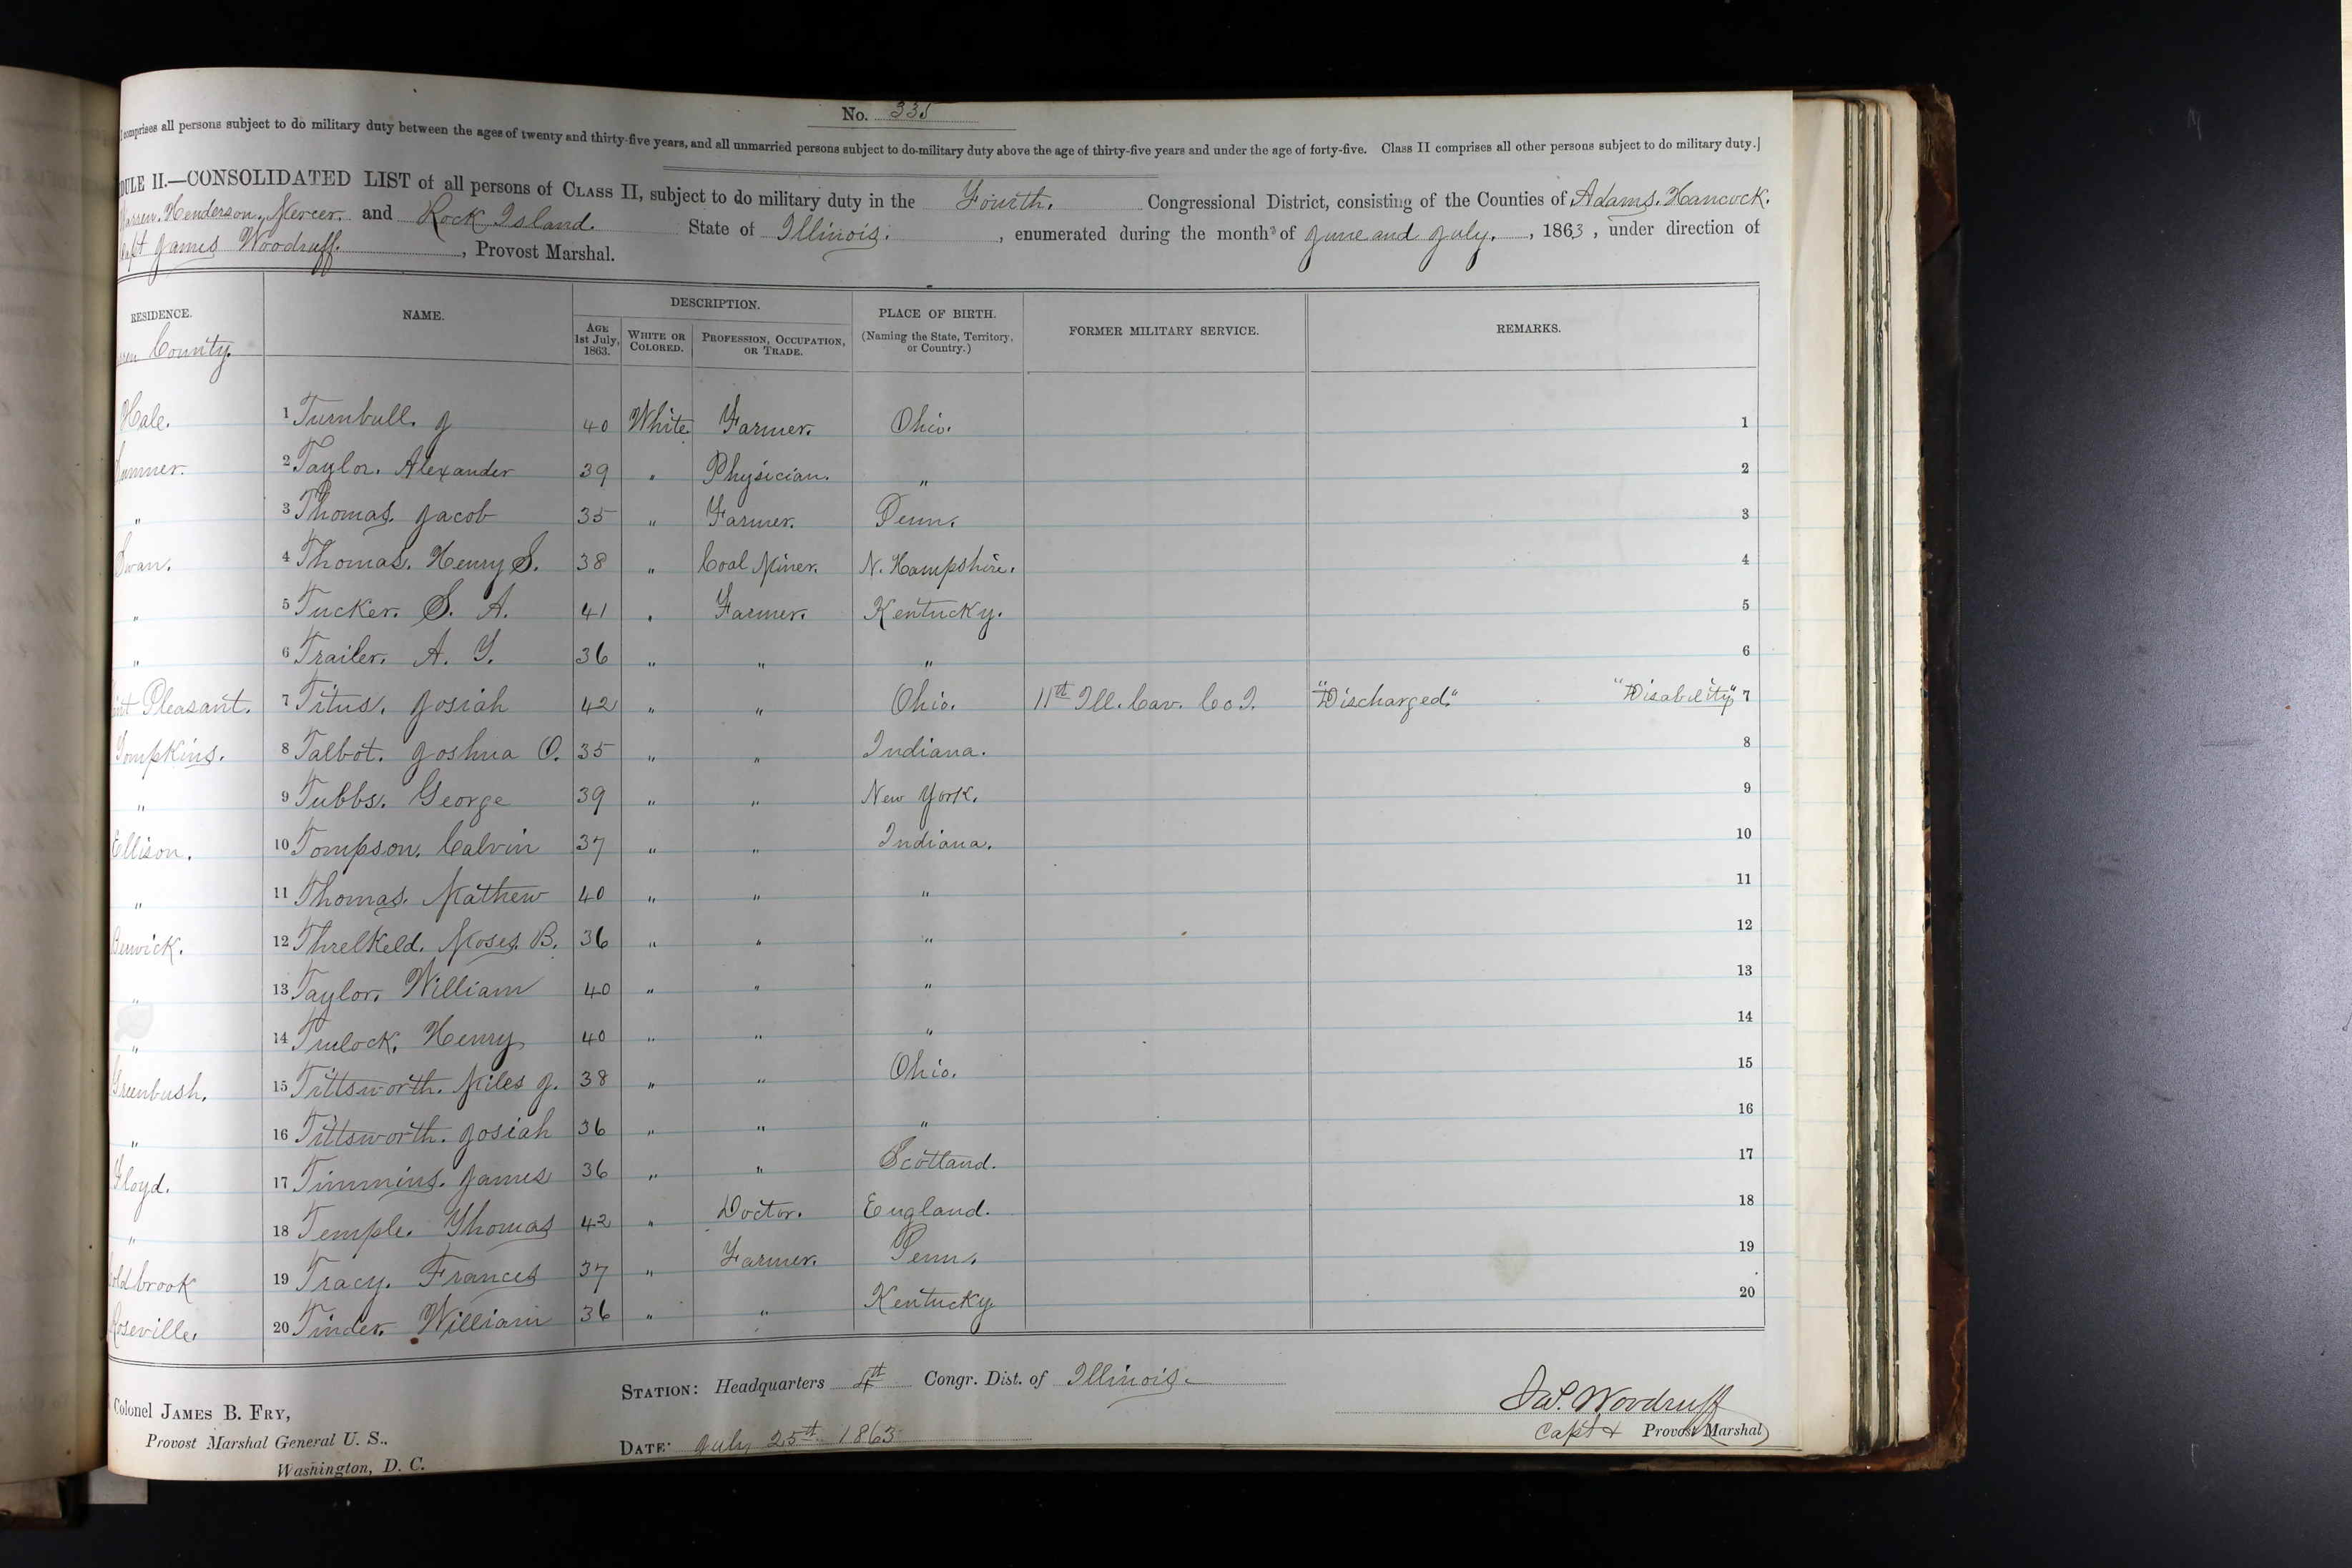 No. 335
comprises all persons subject to do military duty between the ages of twenty and thirty-five years, and all unmarried persons subject to do military duty above the age of thirty-five years and under the age of forty-five. Class II comprises all other persons subject to do military duty.]
DULE II.—CONSOLIDATED LIST of all persons of CLASS II, subject to do military duty in the Fourth. Congressional District, consisting of the Counties of Adams. Hancock.
Warren. Henderson. Mercer. and Rock Island. State of Illinois. , enumerated during the months of June and July. , 1863 , under direction of
Capt James Woodruff. , Provost Marshal.
RESIDENCE. NAME. DESCRIPTION. PLACE OF BIRTH. (Naming the State, Territory, or Country.) FORMER MILITARY SERVICE. REMARKS.
AGE 1st July, 1863. WHITE OR COLORED. PROFESSION, OCCUPATION, OR TRADE.
County.
Hale. 1 Turnbull. J 40 White Farmer. Ohio. 1
Sumner. 2 Taylor. Alexander 39 " Physician. " 2
" 3 Thomas. Jacob 35 " Farmer. Penn. 3
Swan. 4 Thomas. Henry S. 38 " Coal Miner. N. Hampshire. 4
" 5 Tucker. S. A. 41 " Farmer. Kentucky. 5
" 6 Trailer. A. Y. 36 " " " 6
int Pleasant. 7 Titus. Josiah 42 " " Ohio. 11th Ill. Cav. Co I. "Discharged." "Disability" 7
Tompkins. 8 Talbot. Joshua O. 35 " " Indiana. 8
" 9 Tubbs. George 39 " " New York. 9
Ellison. 10 Tompson. Calvin 37 " " Indiana. 10
" 11 Thomas. Mathew 40 " " " 11
Berwick. 12 Threlkeld. Moses B. 36 " " " 12
" 13 Taylor. William 40 " " " 13
" 14 Trulock. Henry 40 " " " 14
Greenbush. 15 Tittsworth. Miles J. 38 " " Ohio. 15
" 16 Tittsworth. Josiah 36 " " " 16
Floyd. 17 Timmins. James 36 " " Scotland. 17
" 18 Temple. Thomas 42 " Doctor. England. 18
oldbrook 19 Tracy. Frances 37 " Farmer. Penn. 19
Roseville. 20 Tinder. William 36 " " Kentucky 20
STATION: Headquarters 4th Congr. Dist. of Illinois.
Colonel JAMES B. FRY,
Provost Marshal General U. S.,
Washington, D. C.
DATE: July 25th 1863
Jas. Woodruff
Capt & Provost Marshal